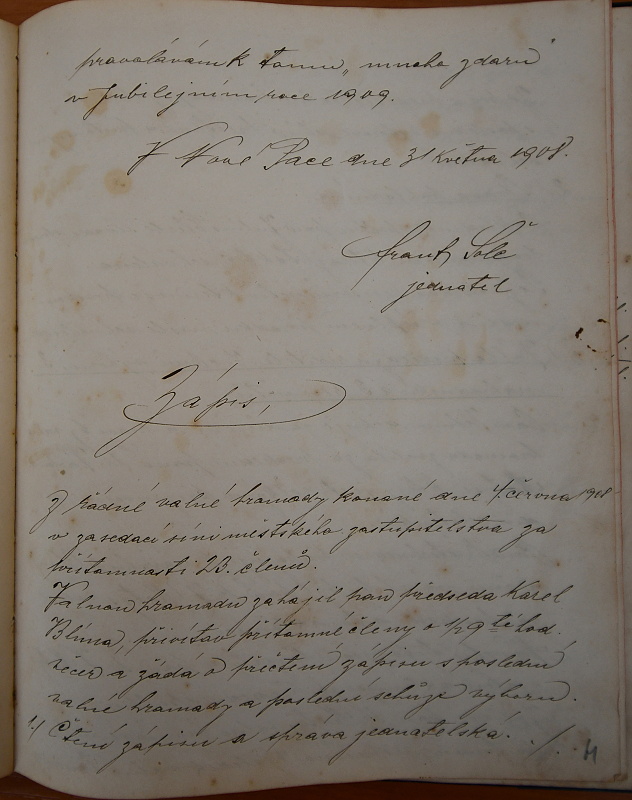 provolávám k tomu „mnoho zdaru"
v jubilejním roce 1909.
V Nové Pace dne 31 května 1908.
Frant. Šolc
jednatel
Zápis,
Z řádné valné hromady konané dne 4. června 1908
v zasedací síni městského zastupitelstva za
přítomnosti 23. členů.
Valnou hromadu zahájil pan předseda Karel
Blíma, přivítav přítomné členy o 1/2 9 té hod.
večer a žádá o přečtení zápisu s poslední
valné hromady a poslední schůze výboru.
1./ Čtení zápisu a správa jednatelská. ./.